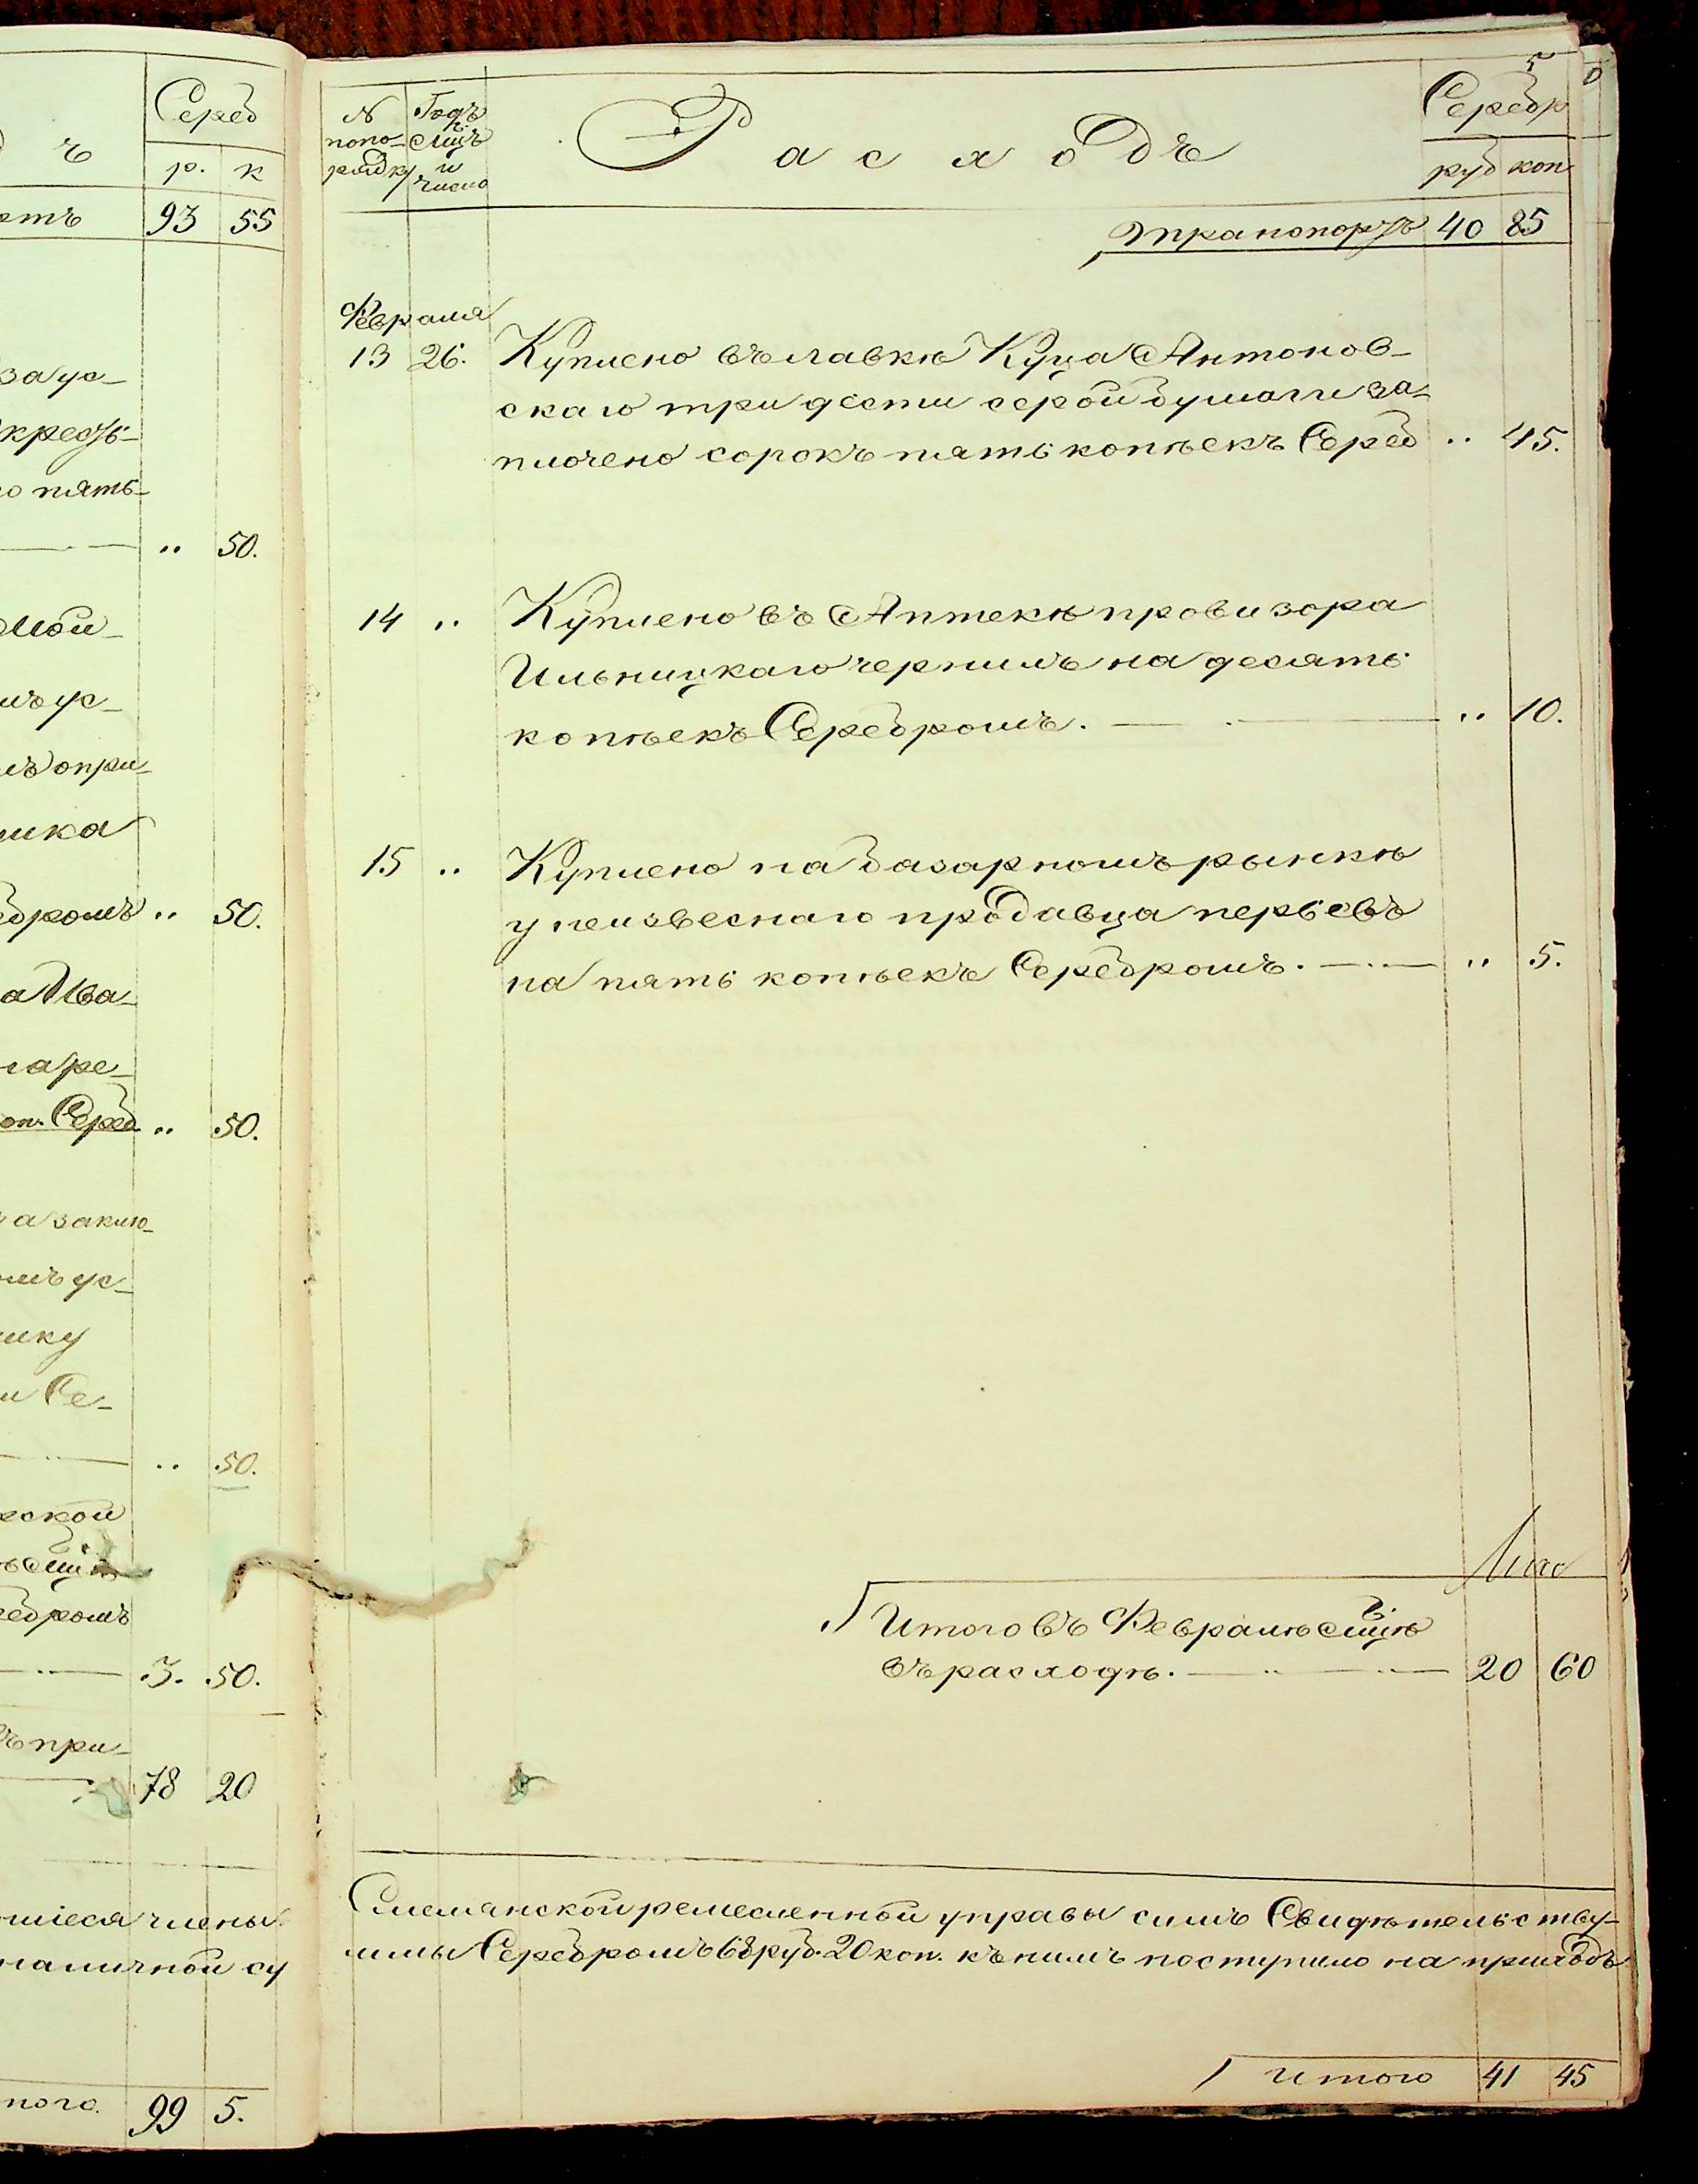 ъ
Сереб
р. к
ртъ 93 55
за ус-
кресть-
о пять-
.. 50.
мой-
мъ ус-
мъ опри-
шка
ебромъ .. 50.
а Ива-
на ре-
оп. Сереб .. 50.
а заклю-
омъ ус-
шку
и Се-
.. 50.
рской
ребромъ
3. 50.
ъ при-
78 20
шіеся члены
наличной су
того. 99 5.
5
№ Годъ
попо- мцъ
рядку и
число
Расходъ
Серебр
руб коп
транспортъ 40 85
Февраля
13 26. Куплено въ лавкѣ Куца Антонов-
скаго три дести серой бумаги за-
плочено сорокъ пять копѣекъ Сереб .. 45.
14 .. Куплено въ Аптекѣ провизора
Ильницкаго чернилъ на десять
копѣекъ Серебромъ. .. 10.
15 .. Куплено на базарномъ рынкѣ
у неизвеснаго продавца перьевъ
на пять копѣекъ Серебромъ. .. 5.
Итого въ Февралѣ мцѣ
въ расходѣ. 20 60
ремесленной управы симъ Свидѣтельству-
ммы Серебромъ 68 руб. 20 коп. къ нимъ поступило на приходъ
Итого 41 45